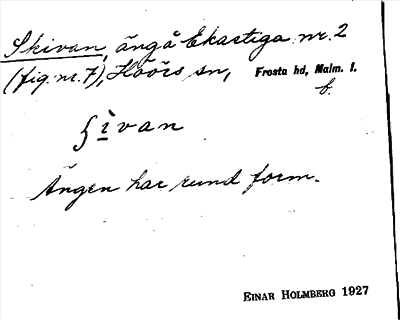 Skivan, äng å Ekastiga nr. 2
(fig. nr. 7), Höörs sn, Frosta hd, Malm. l.
f.
ʃìvan
Ängen har rund form.
EINAR HOLMBERG 1927